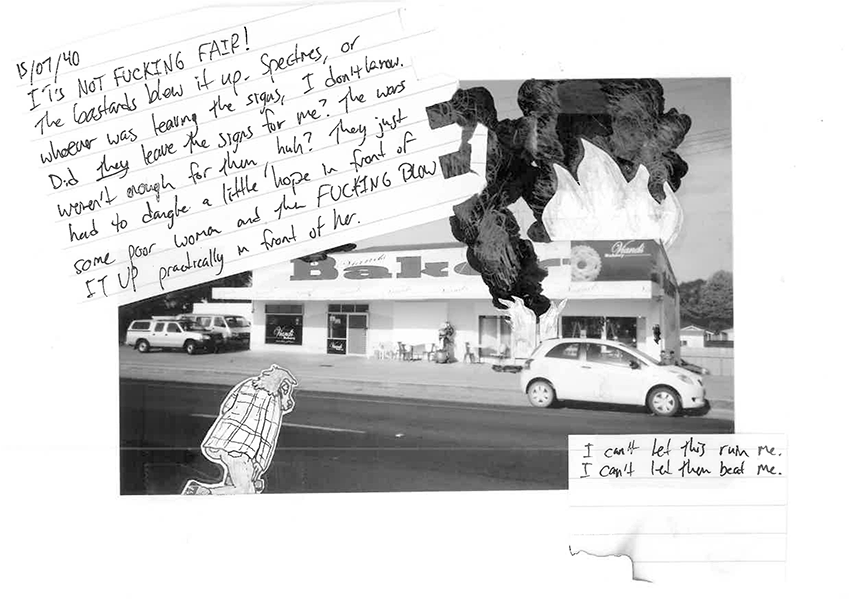 15/07/40
IT'S NOT FUCKING FAIR!
The bastards blew it up. Spectres, or
whoever was leaving the signs, I don't know.
Did they leave the signs for me? The wars
weren't enough for them huh? They just
had to dangle a little hope in front of
some poor woman and then FUCKING BLOW
IT UP practically in front of her.
Viands
Bakery
Viands
Bakery
Viands
Viands
I can't let this ruin me.
I can't let them beat me.